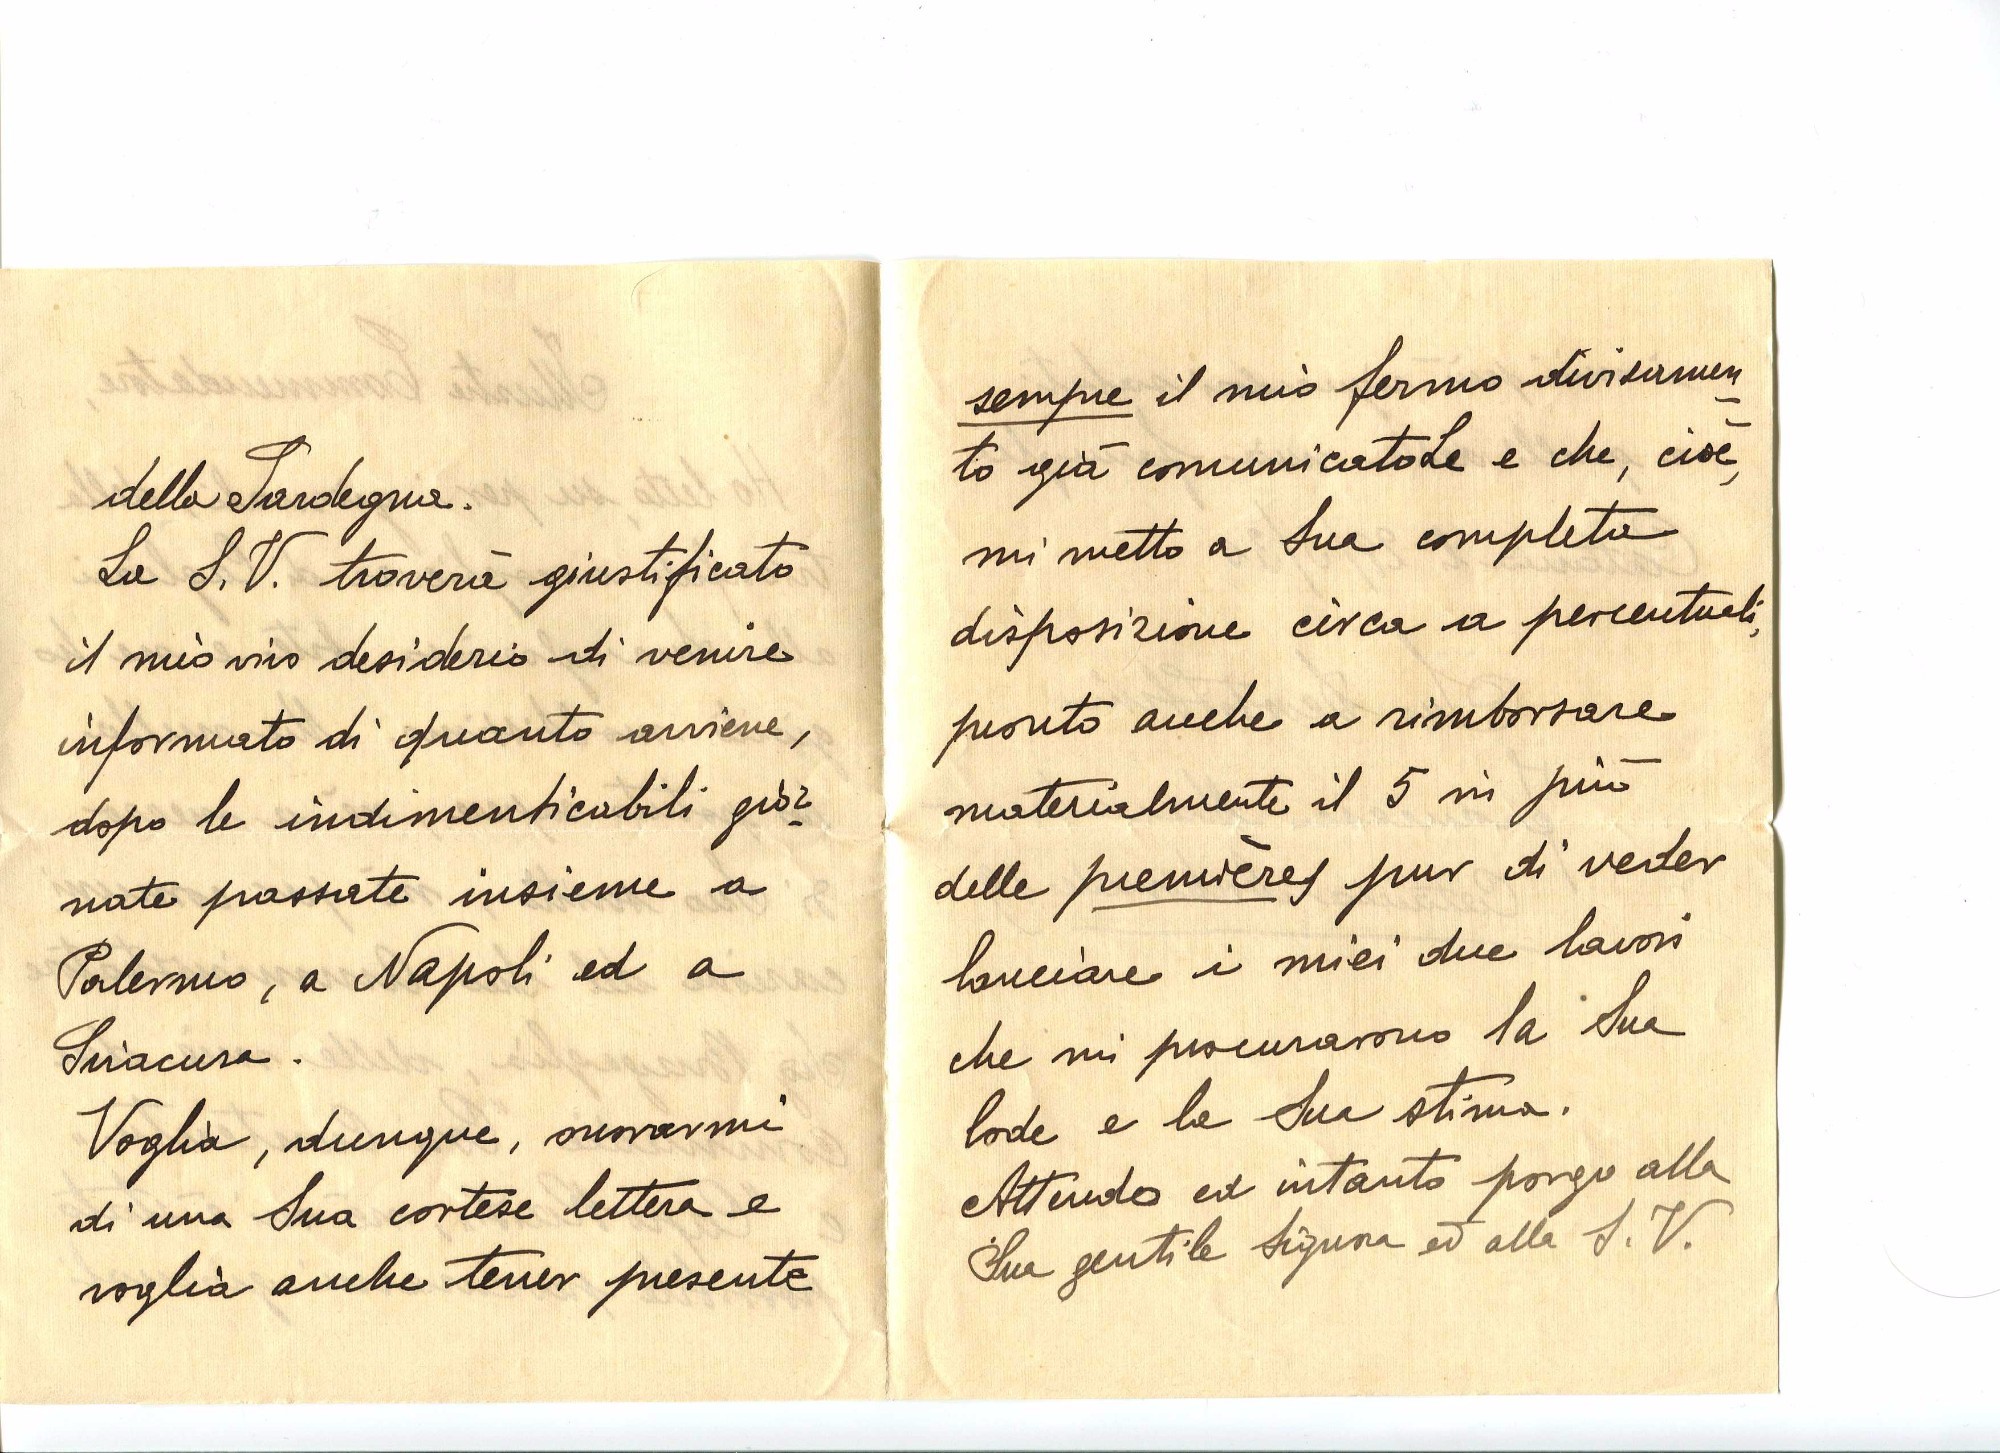 della Sardegna.
La S. V. troverà giustificato
il mio vivo desiderio di venire
informato di quanto avviene,
dopo le indimenticabili gior-
nate passate insieme a
Palermo, a Napoli ed a
Siracusa.
Voglia, dunque, onorarmi
di una Sua cortese lettera e
voglia anche tener presente
sempre il mio fermo divisamen-
to già comunicatoLe e che, cioè,
mi metto a Sua completa
disposizione circa a percentuali,
pronto anche a rimborsare
materialmente il 5 in più
delle premières pur di veder
lanciare i miei due lavori
che mi procurarono la Sua
lode e la Sua stima.
Attendo ed intanto porgo alla
Sua gentile Signora ed alla S. V.